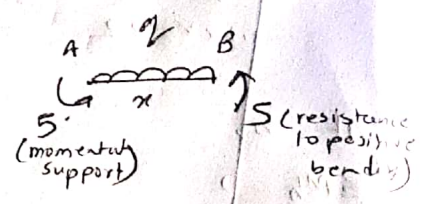 A
B
x
5
(momentum
support)
S (resistance
to positive
bending)